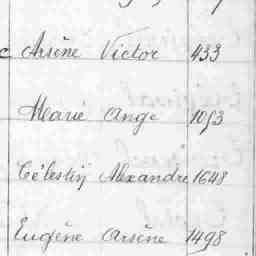 Arsène Victor 433
Marie Ange 1093
Célestin Alexandre 1648
Eugène Arsène 1498